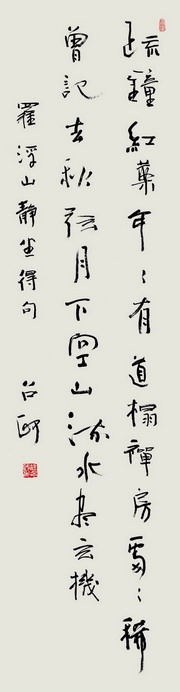 疏鐘紅葉年々有道榻禪房處々稀
曾記去秋弦月下空山流水盡玄機
羅浮山靜坐得句
台邱